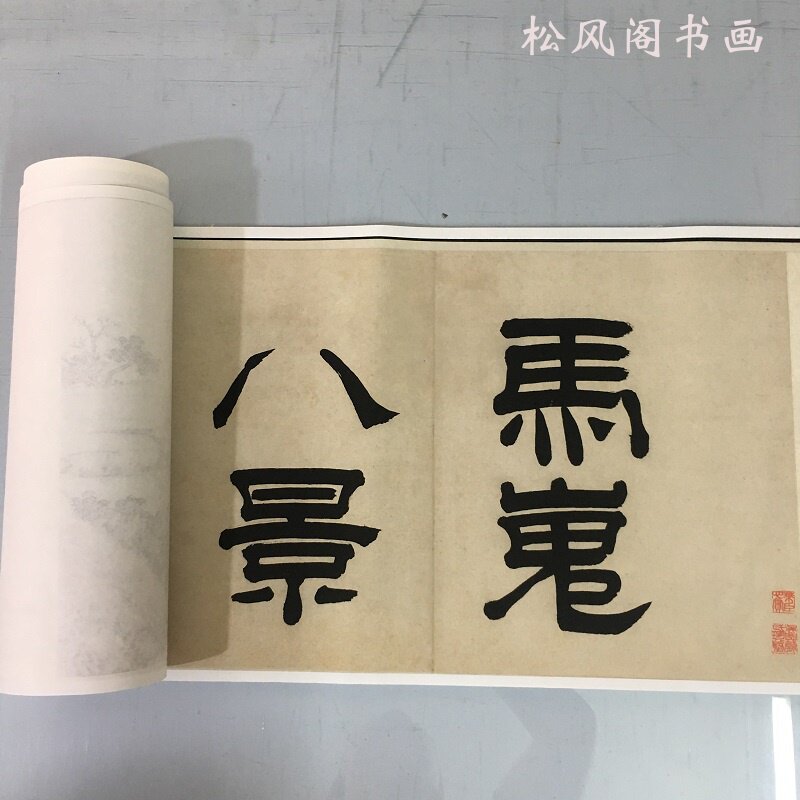 松风阁书画
馬嵬
八景